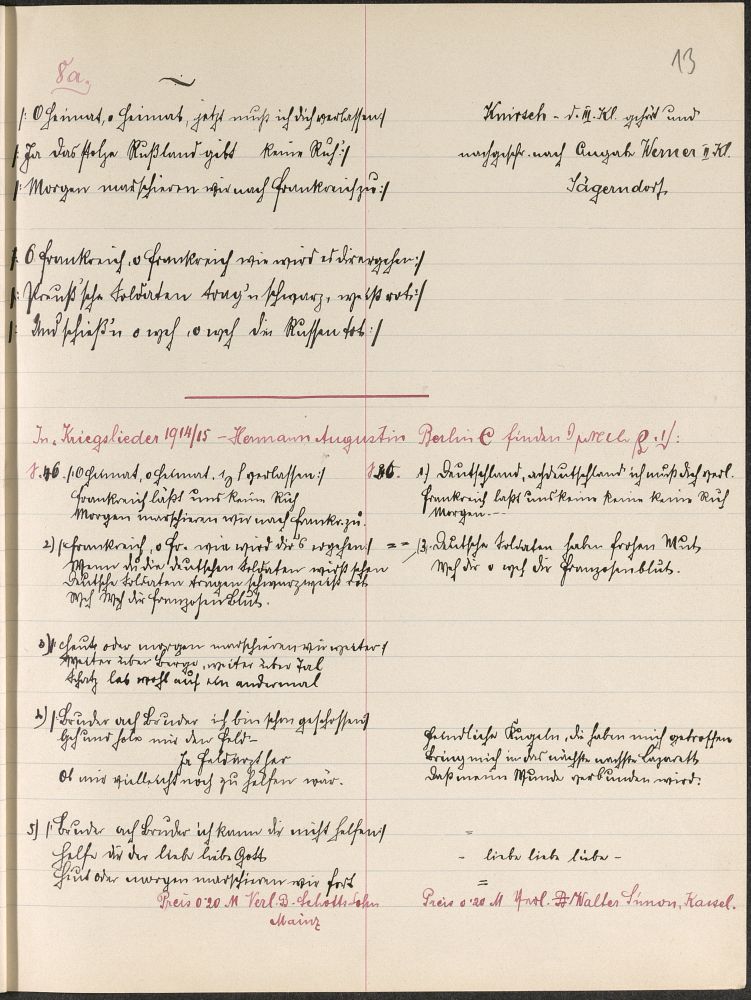 13
8a.
|: O Heimat, o Heimat, jetzt muß ich dich verlassen :|
|: Ja das stolze Rußland gibt keine Ruh' :|
|: Morgen marschieren wir nach Frankreich zu :|
Knirsch - d. III. Kl. gehört und
nachgeschr. nach Angabe Werner II Kl.
Jägerndorf
|: O Frankreich, o Frankreich wie wird es dir ergehen :|
|: Preuß'sche Soldaten trag'n schwarz, weiß rot :|
|: Und schieß'n o weh, o weh die Russen tot :|
In "Kriegslieder 1914/15 - Hermann Augustin Berlin C finden
S. 46. |: O Heimat, o Heimat, verlassen :|
Frankreich läßt uns keine Ruh
Morgen marschieren wir nach Frankr. zu.
2) |: Frankreich, o Fr. wie wird dir's ergehen :|
Wenn du die deutschen Soldaten wirst sehen
Deutsche Soldaten tragen schwarz weiß rot
Weh Weh dir Franzosenblut.
3) |: Heute oder morgen marschieren wir weiter :|
Weiter über Berge, weiter über Tal
Schatz leb wohl auf ein andermal
4) |: Bruder ach Bruder ich bin schon geschossen :|
Geh und hole mir den Feld-
Ja Feldarzt her
Ob mir vielleicht noch zu helfen wär.
5) |: Bruder ach Bruder ich kann dir nicht helfen :|
Helfe dir der liebe liebe Gott
Heut oder morgen marschieren wir fort
Preis 0'20 M Verl. B. Schotts Sohn
Mainz
1) Deutschland, ach Deutschland ich muß dich verl.
Frankreich laßt uns keine keine keine Ruh
Morgen ---
= = 3. Deutsche Soldaten haben frohen Mut
Weh dir o weh dir Franzosenblut.
Feindliche Kugeln, die haben mich getroffen
Bring mich in das nächste nächste Lazarett
Daß meine Wunde verbunden wird.
=
- liebe liebe liebe -
=
Preis 0'20 M Verl. Walter Simon, Kassel.